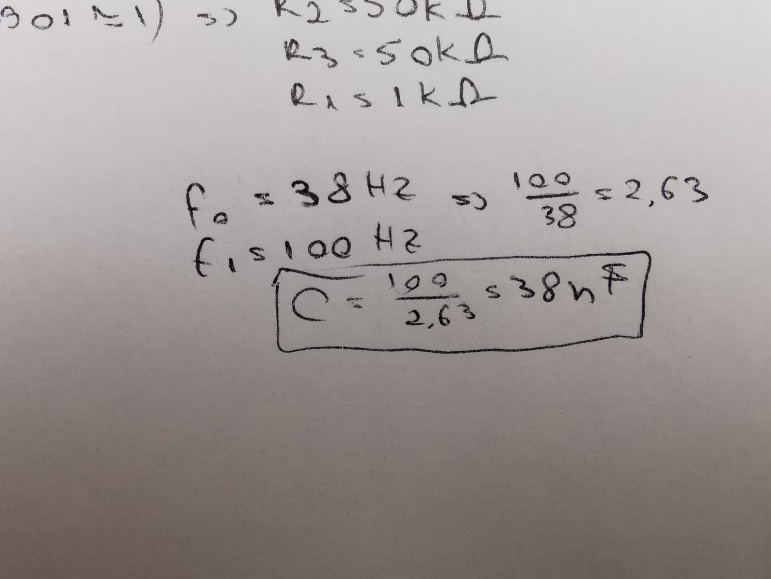 901≈1) => R2=50kΩ
R3=50kΩ
R1=1kΩ
f0=38HZ => 100/38=2,63
f1=100 HZ
C=100/2,63=38nF